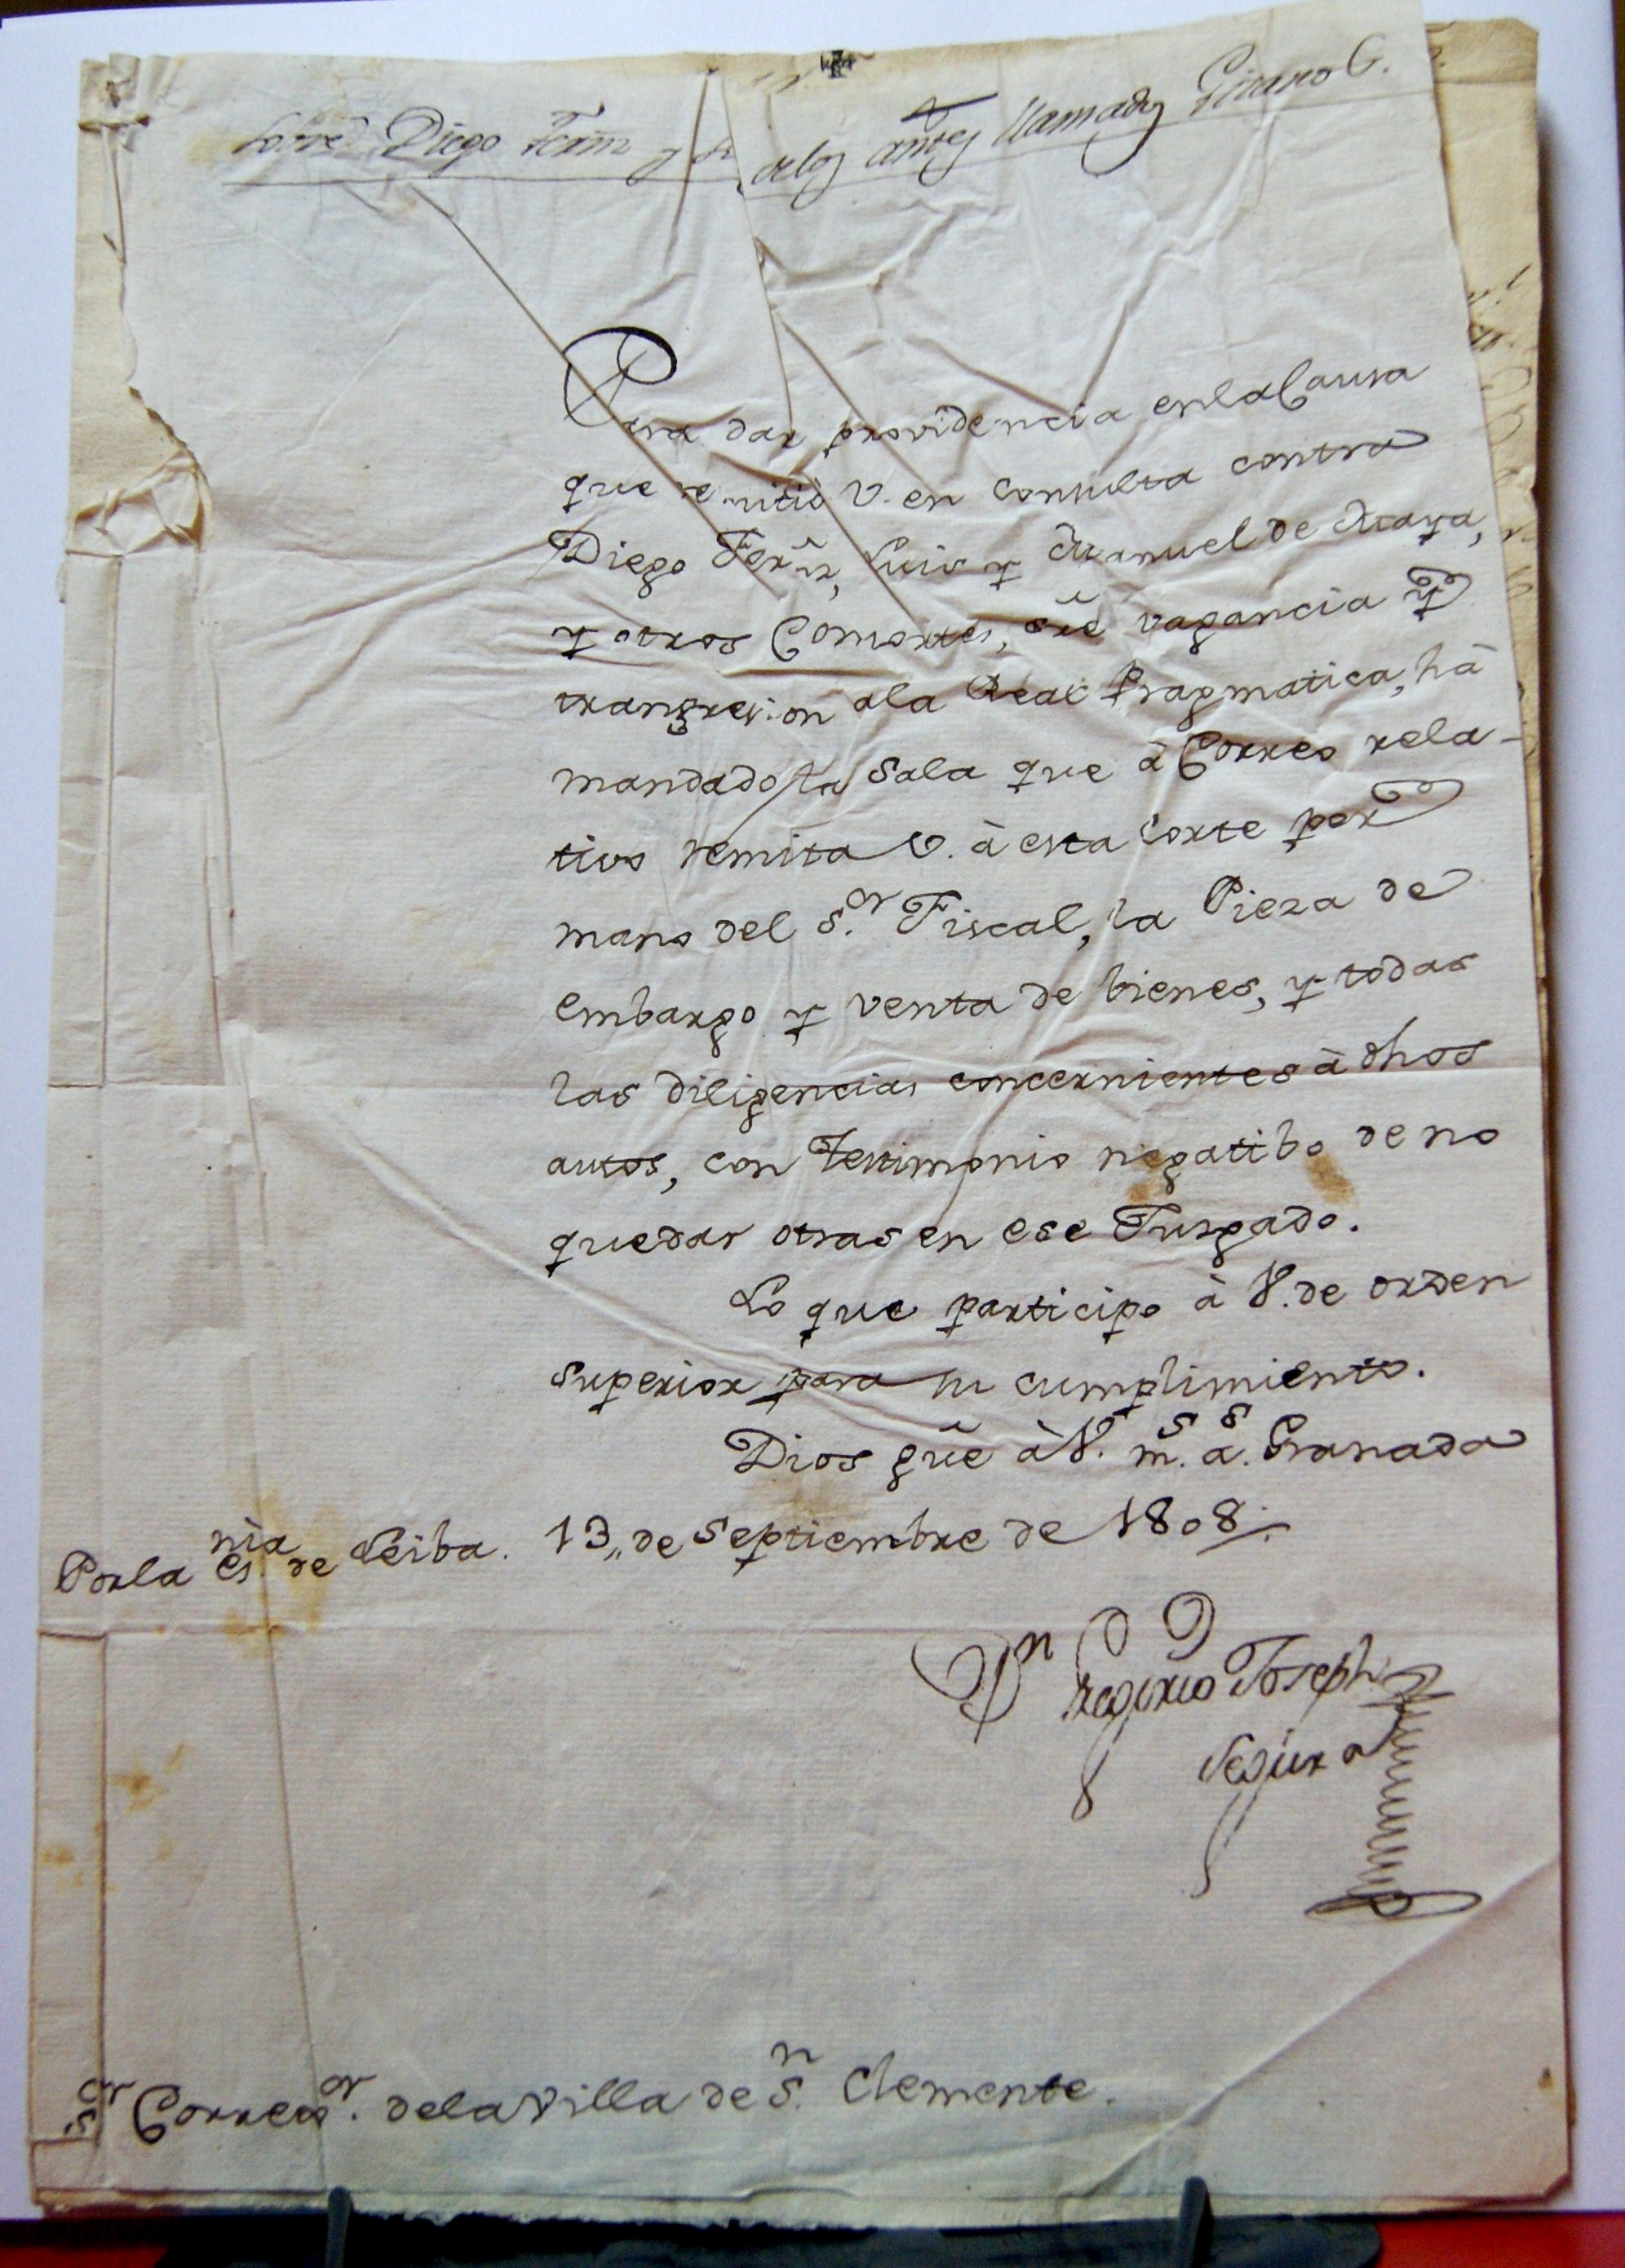 ✝
Sobre Diego Fernz y de los antes llamados Gitanos.
Para dar providencia en la Causa
que remitió V. en Consulta contra
Diego Fernz, Luis y Manuel de Maya,
y otros Consortes, sre vagancia y
transgresion ala Real Pragmatica, hà
mandado la Sala que à Correo rela-
tivo remita V. à esta Corte por
mano del S.or Fiscal, la Pieza de
embargo y venta de bienes, y todas
las diligencias concernientes à dhos
autos, con Testimonio negatibo de no
quedar otras en ese Jusgado.
Lo que participo à V. de orden
superior para su cumplimiento.
Dios gûe à V. m.s a.s Granada
13,, de Septiembre de 1808.
Por la es.nia de Leiba.
Dn Rogerio Joseph
Segura
S.or Correg.or dela villa de S.n Clemente.